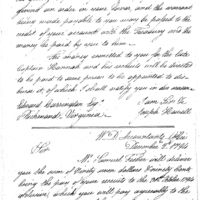 found an order in your favor, and the warrant
being made payable to you may be passed to the
credit of your account with the Treasury and the
money be paid by you to them.
The money committed to you for the late
Captain Hannah and his recruits will be directed
to be paid to some person to be appointed to dis=
burse it, of which I shall notify you in due season
Edward Carrington Esq. I am Sir &c.
Richmond, Virginia. Joseph Howell
W. D. Accountants Office
December 8th 1794
Sir
Mr. Samuel Fisher will deliver
you the sum of Ninety seven dollars Ninety cents
being the pay of your recruits to the 31st October 1794
inclusive, which you will pay agreeably to the